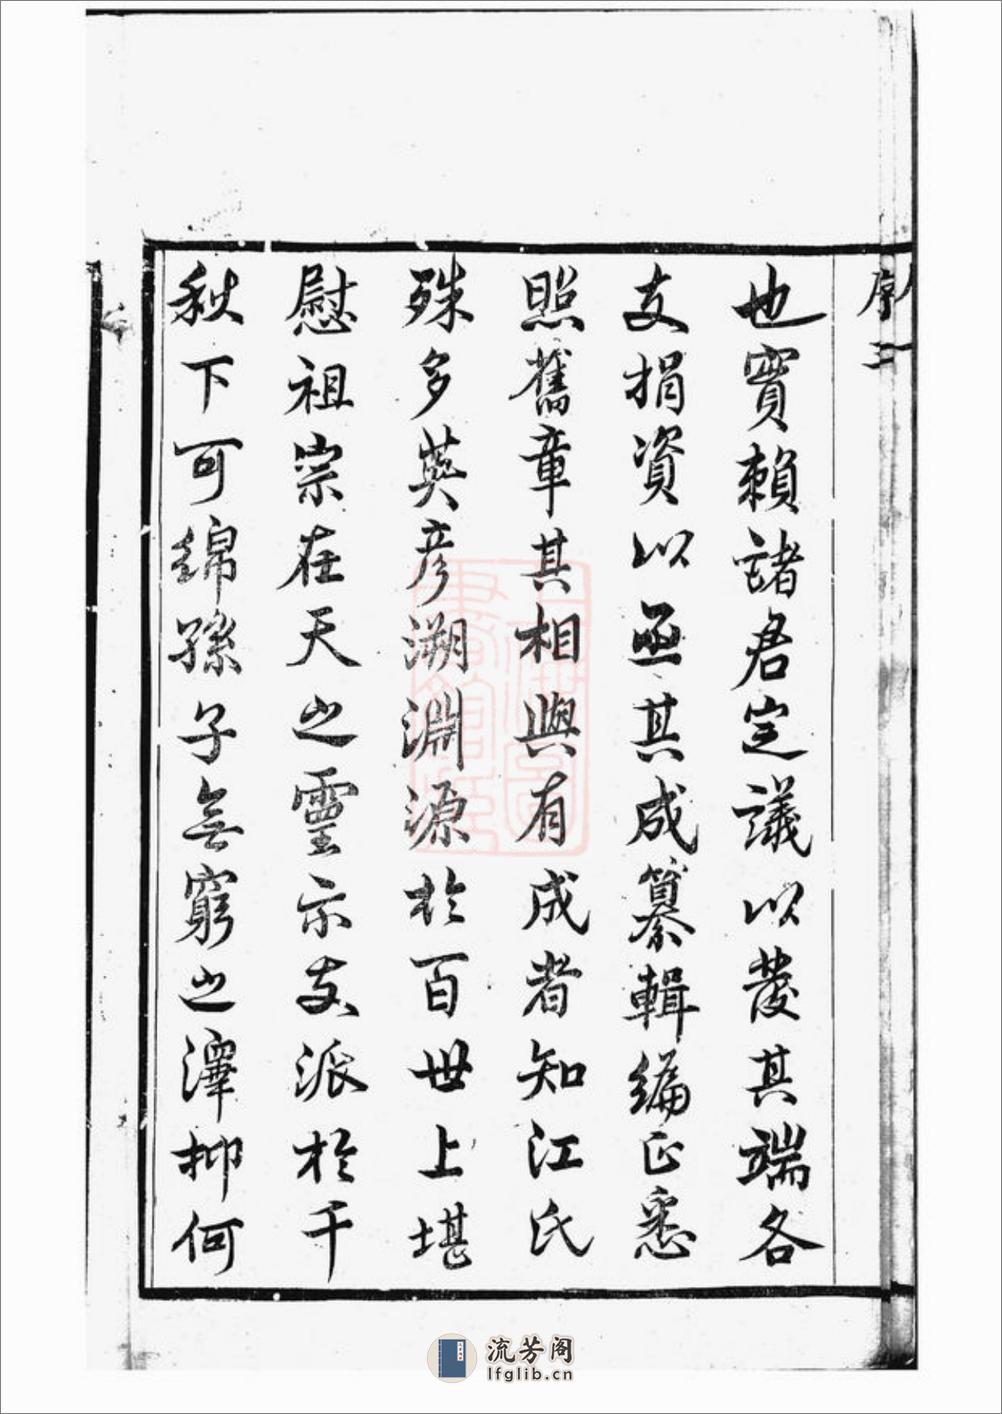 序二
也實賴諸君定議以發其端各
支捐資以亟其成纂輯編正悉
照舊章其相與有成者知江氏
殊多英彦溯淵源於百世上堪
慰祖宗在天之靈示支派於千
秋下可綿孫子無窮之澤抑何
流芳阁
lfglib.cn